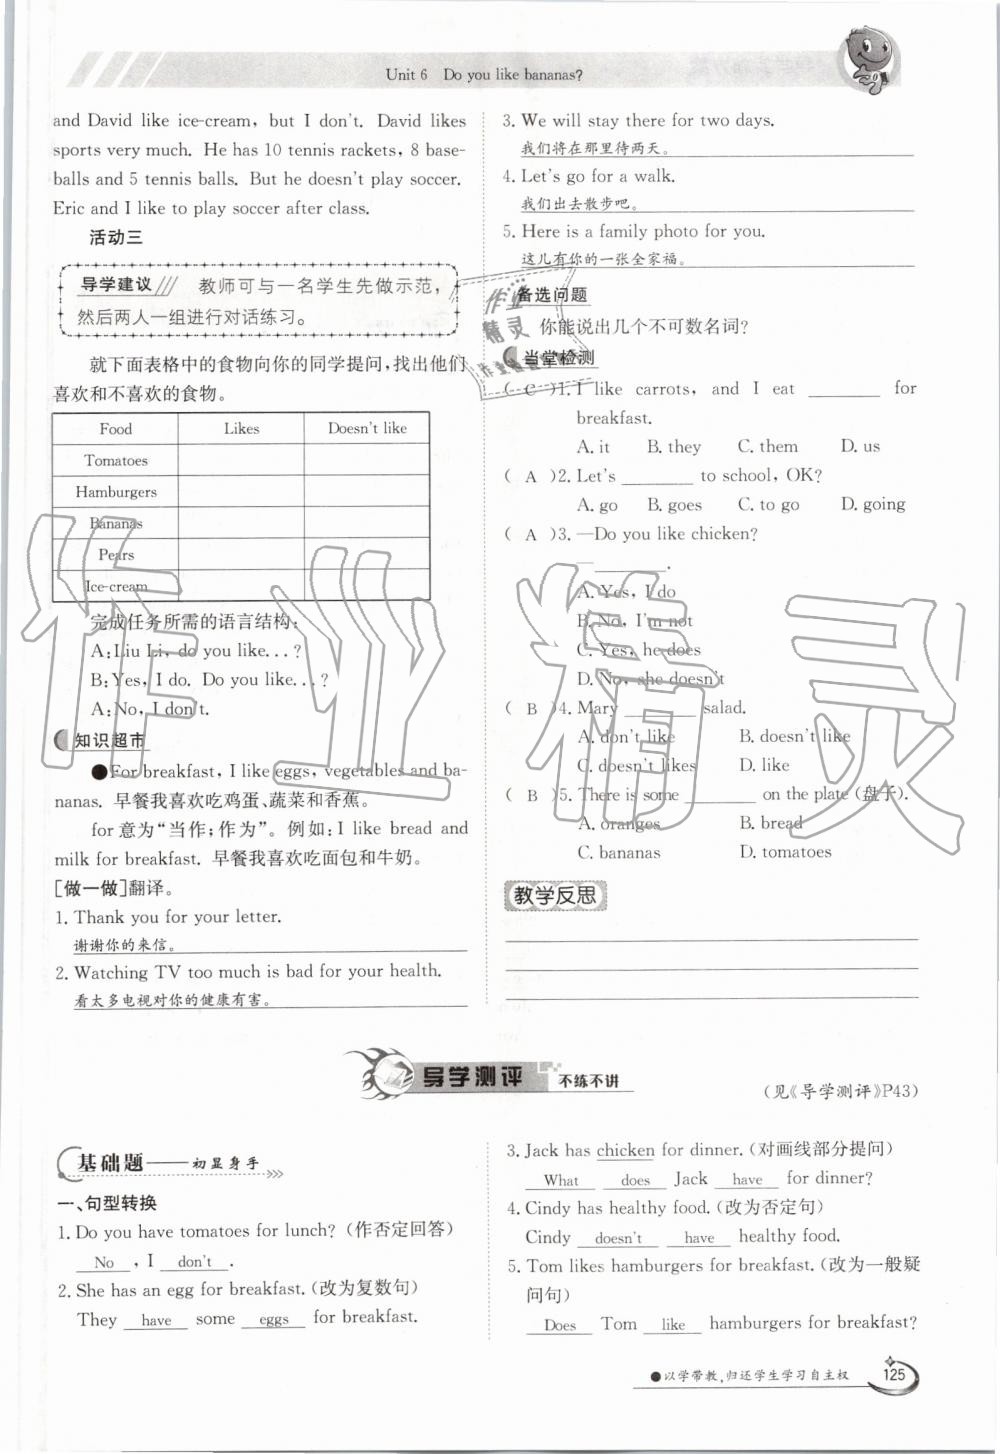 Unit 6 Do you like bananas?
and David like ice-cream, but I don't. David likes
sports very much. He has 10 tennis rackets, 8 base-
balls and 5 tennis balls. But he doesn't play soccer.
Eric and I like to play soccer after class.
活动三
导学建议 教师可与一名学生先做示范,
然后两人一组进行对话练习。
就下面表格中的食物向你的同学提问,找出他们
喜欢和不喜欢的食物。
Food Likes Doesn't like
Tomatoes
Hamburgers
Bananas
Pears
Ice-cream
完成任务所需的语言结构:
A:Liu Li, do you like...?
B:Yes, I do. Do you like...?
A:No, I don't.
知识超市
●For breakfast, I like eggs, vegetables and ba-
nanas. 早餐我喜欢吃鸡蛋、蔬菜和香蕉。
for 意为“当作;作为”。例如:I like bread and
milk for breakfast. 早餐我喜欢吃面包和牛奶。
[做一做]翻译。
1. Thank you for your letter.
谢谢你的来信。
2. Watching TV too much is bad for your health.
看太多电视对你的健康有害。
3. We will stay there for two days.
我们将在那里待两天。
4. Let's go for a walk.
我们出去散步吧。
5. Here is a family photo for you.
这儿有你的一张全家福。
备选问题
你能说出几个不可数名词?
当堂检测
( C )1. I like carrots, and I eat ________ for
breakfast.
A. it B. they C. them D. us
( A )2. Let's ________ to school, OK?
A. go B. goes C. to go D. going
( A )3. —Do you like chicken?
— ________.
A. Yes, I do
B. No, I'm not
C. Yes, he does
D. No, she doesn't
( B )4. Mary ________ salad.
A. don't like B. doesn't like
C. doesn't likes D. like
( B )5. There is some ________ on the plate (盘子).
A. oranges B. bread
C. bananas D. tomatoes
教学反思
作业精灵
导学测评 不练不讲
(见《导学测评》P43)
基础题——初显身手
一、句型转换
1. Do you have tomatoes for lunch? (作否定回答)
No , I don't .
2. She has an egg for breakfast. (改为复数句)
They have some eggs for breakfast.
3. Jack has chicken for dinner. (对画线部分提问)
What does Jack have for dinner?
4. Cindy has healthy food. (改为否定句)
Cindy doesn't have healthy food.
5. Tom likes hamburgers for breakfast. (改为一般疑
问句)
Does Tom like hamburgers for breakfast?
●以学带教,归还学生学习自主权 125